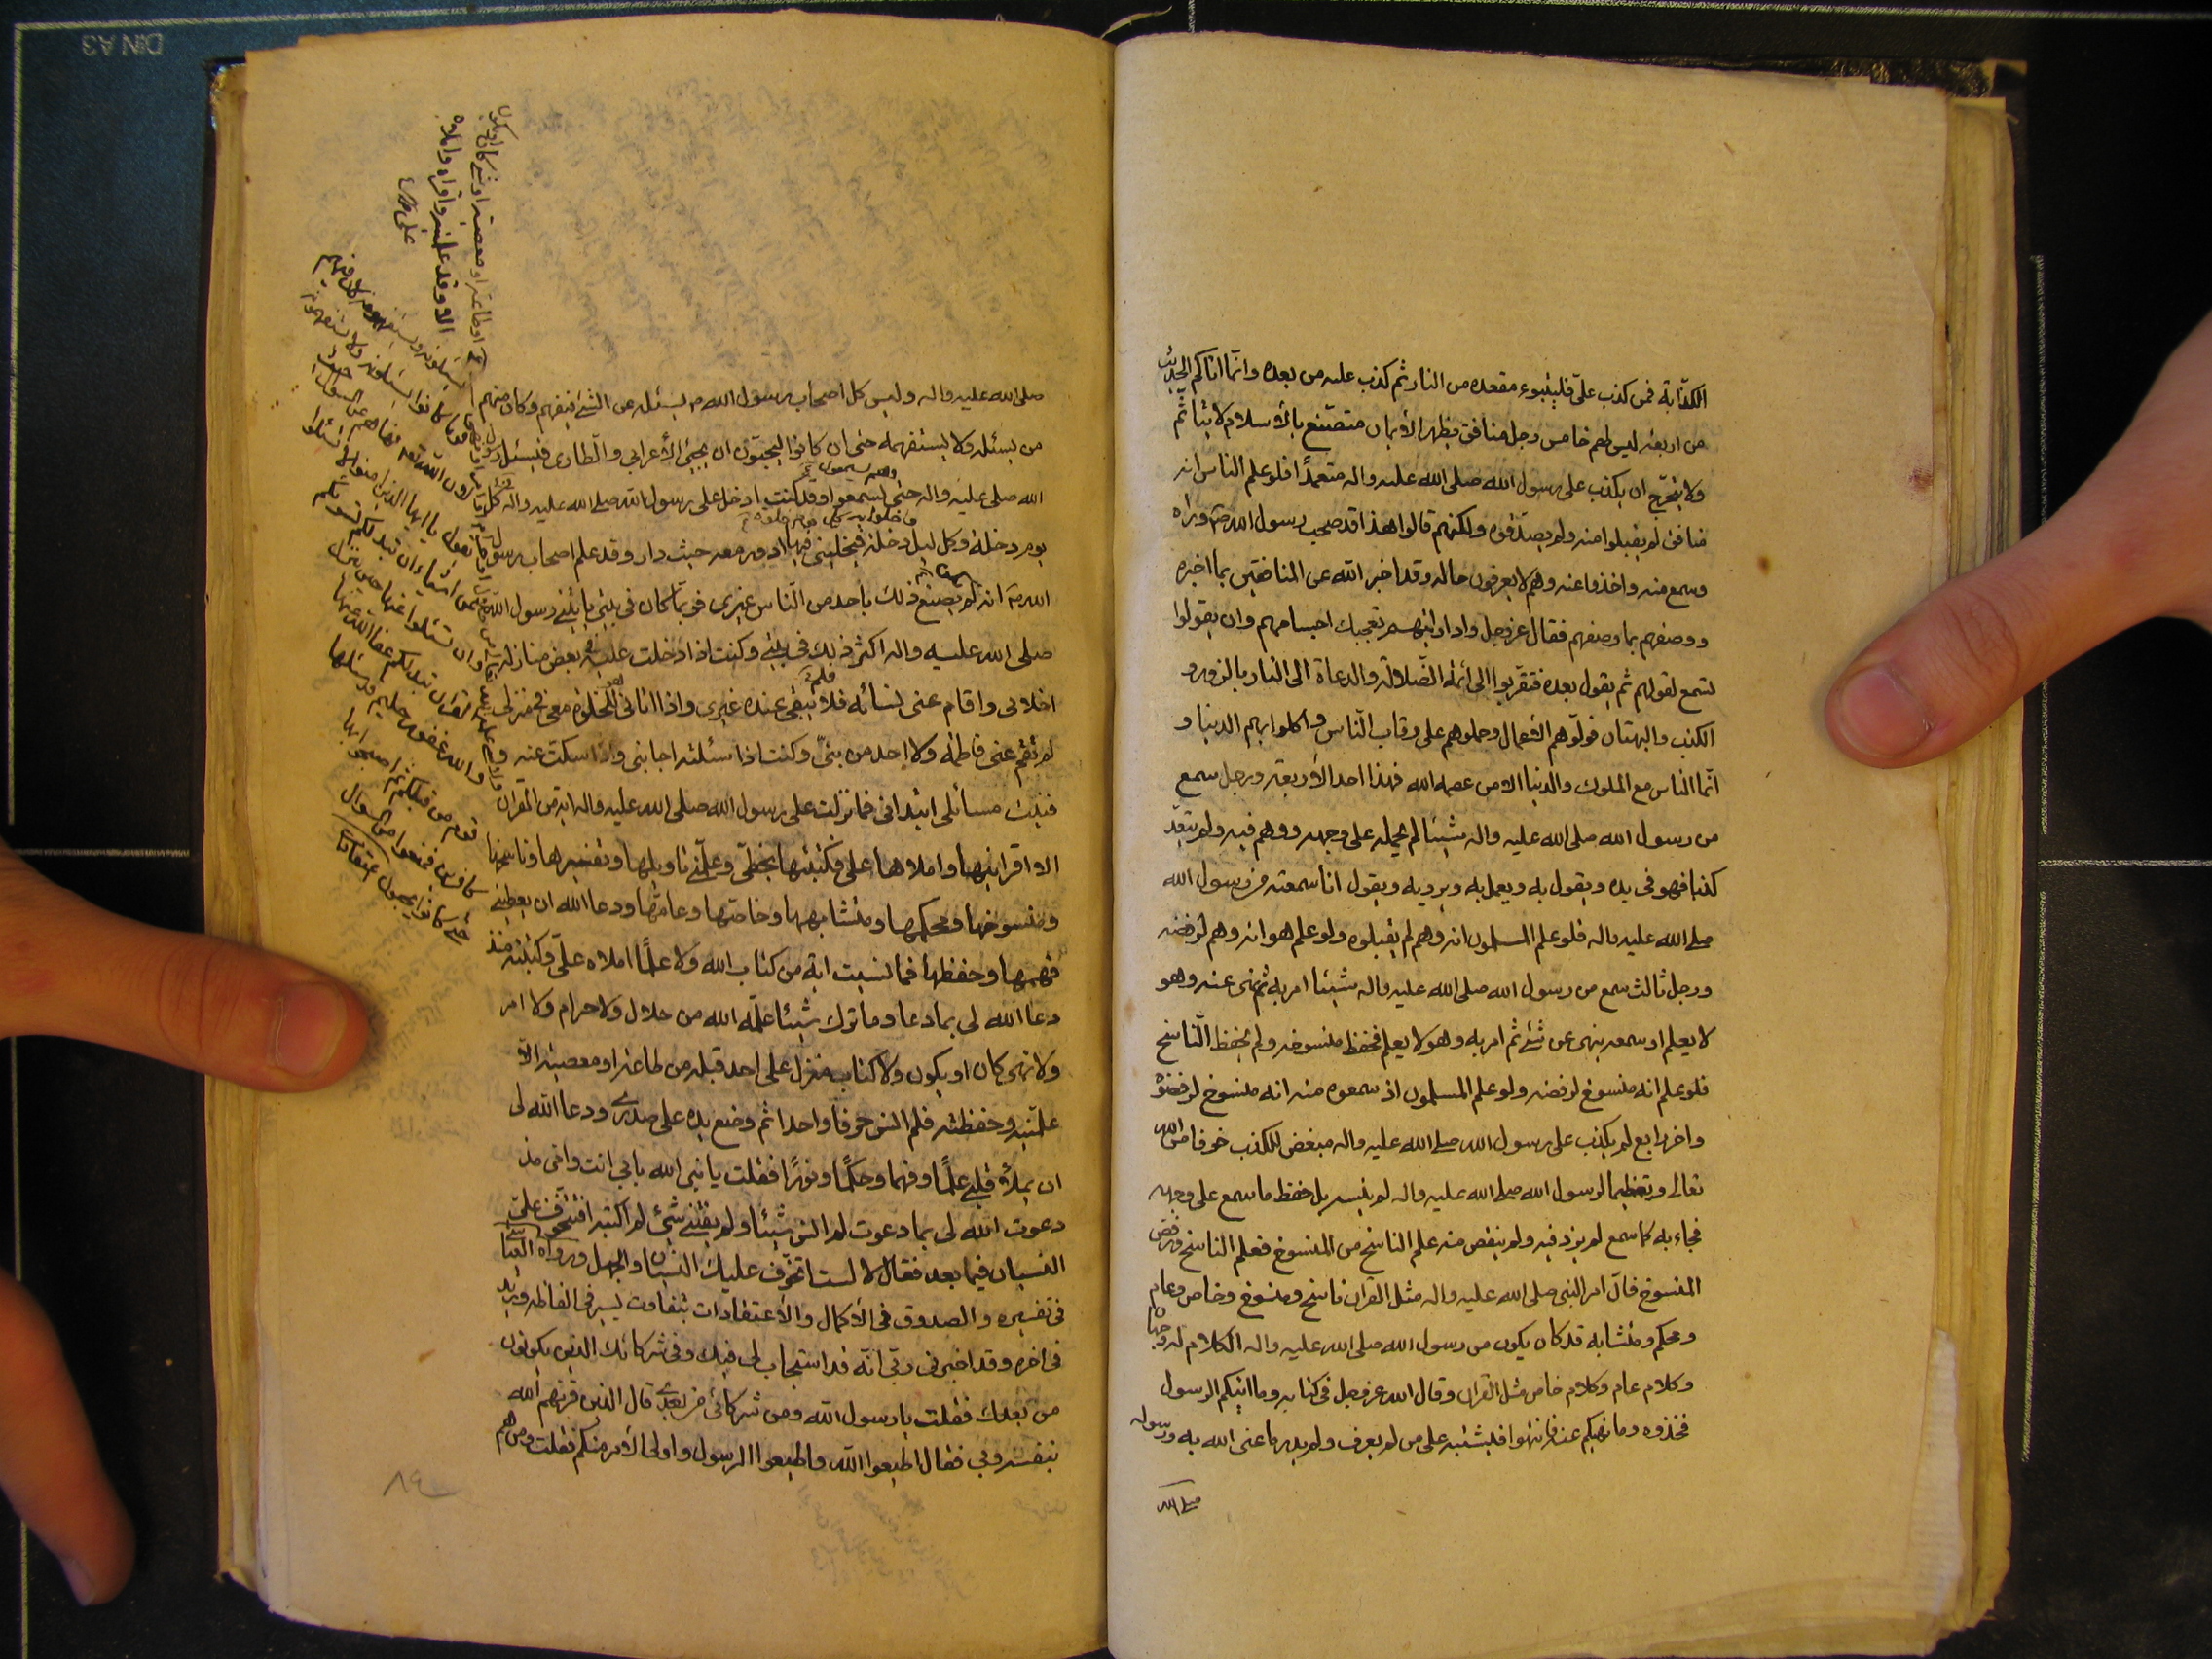 الكذابة فمن كذب علىّ فليتبوء مقعده من النار ثم كذب عليه من بعده وانّما اتاكم الحديث
من اربعة ليس لهم خامس رجل منافق يظهر الأيمان متصنّع بالأسلام لا يتأثّم
ولا يتحرّج ان يكذب على رسول الله صلى الله عليه واله متعمداً فلو علم الناس انه
منافق لم يقبلوا منه ولم يصدّقوه ولكنهم قالوا هذا قد صحب رسول الله ص وراه
وسمع منه واخذوا عنه وهم لا يعرفون حاله وقد اخبر الله عن المنافقين بما اخبره
ووصفهم بما وصفهم فقال عز وجل واذا رايتهم تعجبك اجسامهم وان يقولوا
تسمع لقولهم ثم بقوا بعده فتقرّبوا الى ائمة الضّلالة والدعاة الى النار بالزور و
الكذب والبهتان فولّوهم الأعمال وحملوهم على رقاب النّاس واكلوا بهم الدنيا و
انّما النّاس مع الملوك والدنيا الا من عصمه الله فهذا احد الأربعة ورجل سمع
من رسول الله صلى الله عليه واله شيئا لم يحمله على وجهه ووهم فيه ولم يتعمّد
كذبا فهو فى يده ويقول به ويعمل به ويرويه ويقول انا سمعته من رسول الله
صلى الله عليه واله فلو علم المسلمون انه وهم لم يقبلوه ولو علم هو انه وهم لرفضه
ورجل ثالث سمع من رسول الله صلى الله عليه واله شيئا امر به ثم نهى عنه وهو
لا يعلم او سمعه ينهى عن شئ ثم امر به وهو لا يعلم فحفظ منسوخه ولم يحفظ النّاسخ
فلو علم انه منسوخ لرفضه ولو علم المسلمون اذ سمعوه منه انه منسوخ لرفضوه
واخر رابع لم يكذب على رسول الله صلى الله عليه واله مبغض للكذب خوفا من الله
تعالى وتعظيما لرسول الله صلى الله عليه واله لم ينسه بل حفظ ما سمع على وجهه
فجاء به كما سمع لم يزد فيه ولم ينقص منه علم الناسخ من المنسوخ فعمل الناسخ ورفض
المنسوخ فانّ امر النبى صلى الله عليه واله مثل القران ناسخ ومنسوخ وخاص وعام
ومحكم ومتشابه قد كان يكون من رسول الله صلى الله عليه واله الكلام له وجهان
وكلام عام وكلام خاص مثل القران وقال الله عز وجل فى كتابه وما اتيكم الرسول
فخذوه وما نهيكم عنه فانتهوا فيشتبه على من لم يعرف ولم يدر ما عنى الله به ورسوله
صلى الله
صلى الله عليه واله وليس كل اصحاب رسول الله ص يسئله عن الشئ فيفهم وكان منهم
من يسئله ولا يستفهمه حتى ان كانوا ليحبّون ان يجئ الأعرابى والطّارى فيسئل رسول
الله صلى عليه واله حتى يسمعوا وقد كنت ادخل على رسول الله صلى الله عليه واله كل
يوم دخلة وكل ليل دخلة فيخلينى فيها ادور معه حيث دار وقد علم اصحاب رسول
الله ص انه لم يصنع ذلك باحد من النّاس غيرى فربّما كان فى بيتى ياتينى رسول الله
صلى الله عليه واله اكثر ذلك فى بيتى وكنت اذا دخلت عليه بعض منازله
اخلانى واقام عنى نسائه فلا يبقى عنده غيرى واذا اتانى للخلوة معى فى منزلى
لم تقم عنى فاطمة ولا احد من بنىّ وكنت اذا سئلته اجابنى واذا سكتّ عنه و
فنيت مسائلى ابتدانى فما نزلت على رسول الله صلى الله عليه واله اية من القران
الا اقرانيها واملاها على فكتبتها بخطّى وعلّمنى تاويلها وتفسيرها وناسخها
ومنسوخها ومحكمها ومتشابهها وخاصّها وعامّها ودعا الله ان يعطينى
فهمها وحفظها فما نسيت اية من كتاب الله ولا علمًا املاه علىّ وكتبته منذ
دعا الله لى بما دعا وما ترك شيئا علّمه الله من حلال ولا حرام ولا امر
ولا نهى كان او يكون ولا كتاب منزل على احد قبله من طاعة او معصية الّا
علّمنيه وحفظته فلم انس حرفا واحدا ثم وضع يده على صدرى ودعا الله لى
ان يملأ قلبى علمًا وفهما وحكمًا ونورًا فقلت يا نبى الله بابى انت وامى منذ
دعوت الله لى بما دعوت لم انس شيئا ولم يفتنى شئ لم اكتبه افتتخوّف علىّ
النسيان فيما بعد فقال لا لست اتخوّف عليك النسيان والجهل ورواه العياشى
فى تفسيره والصدوق فى الأكمال والاعتقادات بتفاوت يسير فى الفاظه وزيد
فى اخره وقد اخبرنى ربى انّه قد استجاب لى فيك وفى شركائك الذين يكونون
من بعدك فقلت يا رسول الله ومن شركائى من بعدى قال الذين قرنهم الله
بنفسه وبى فقال اطيعوا الله واطيعوا الرسول واولى الأمر منكم فقلت ومن هم